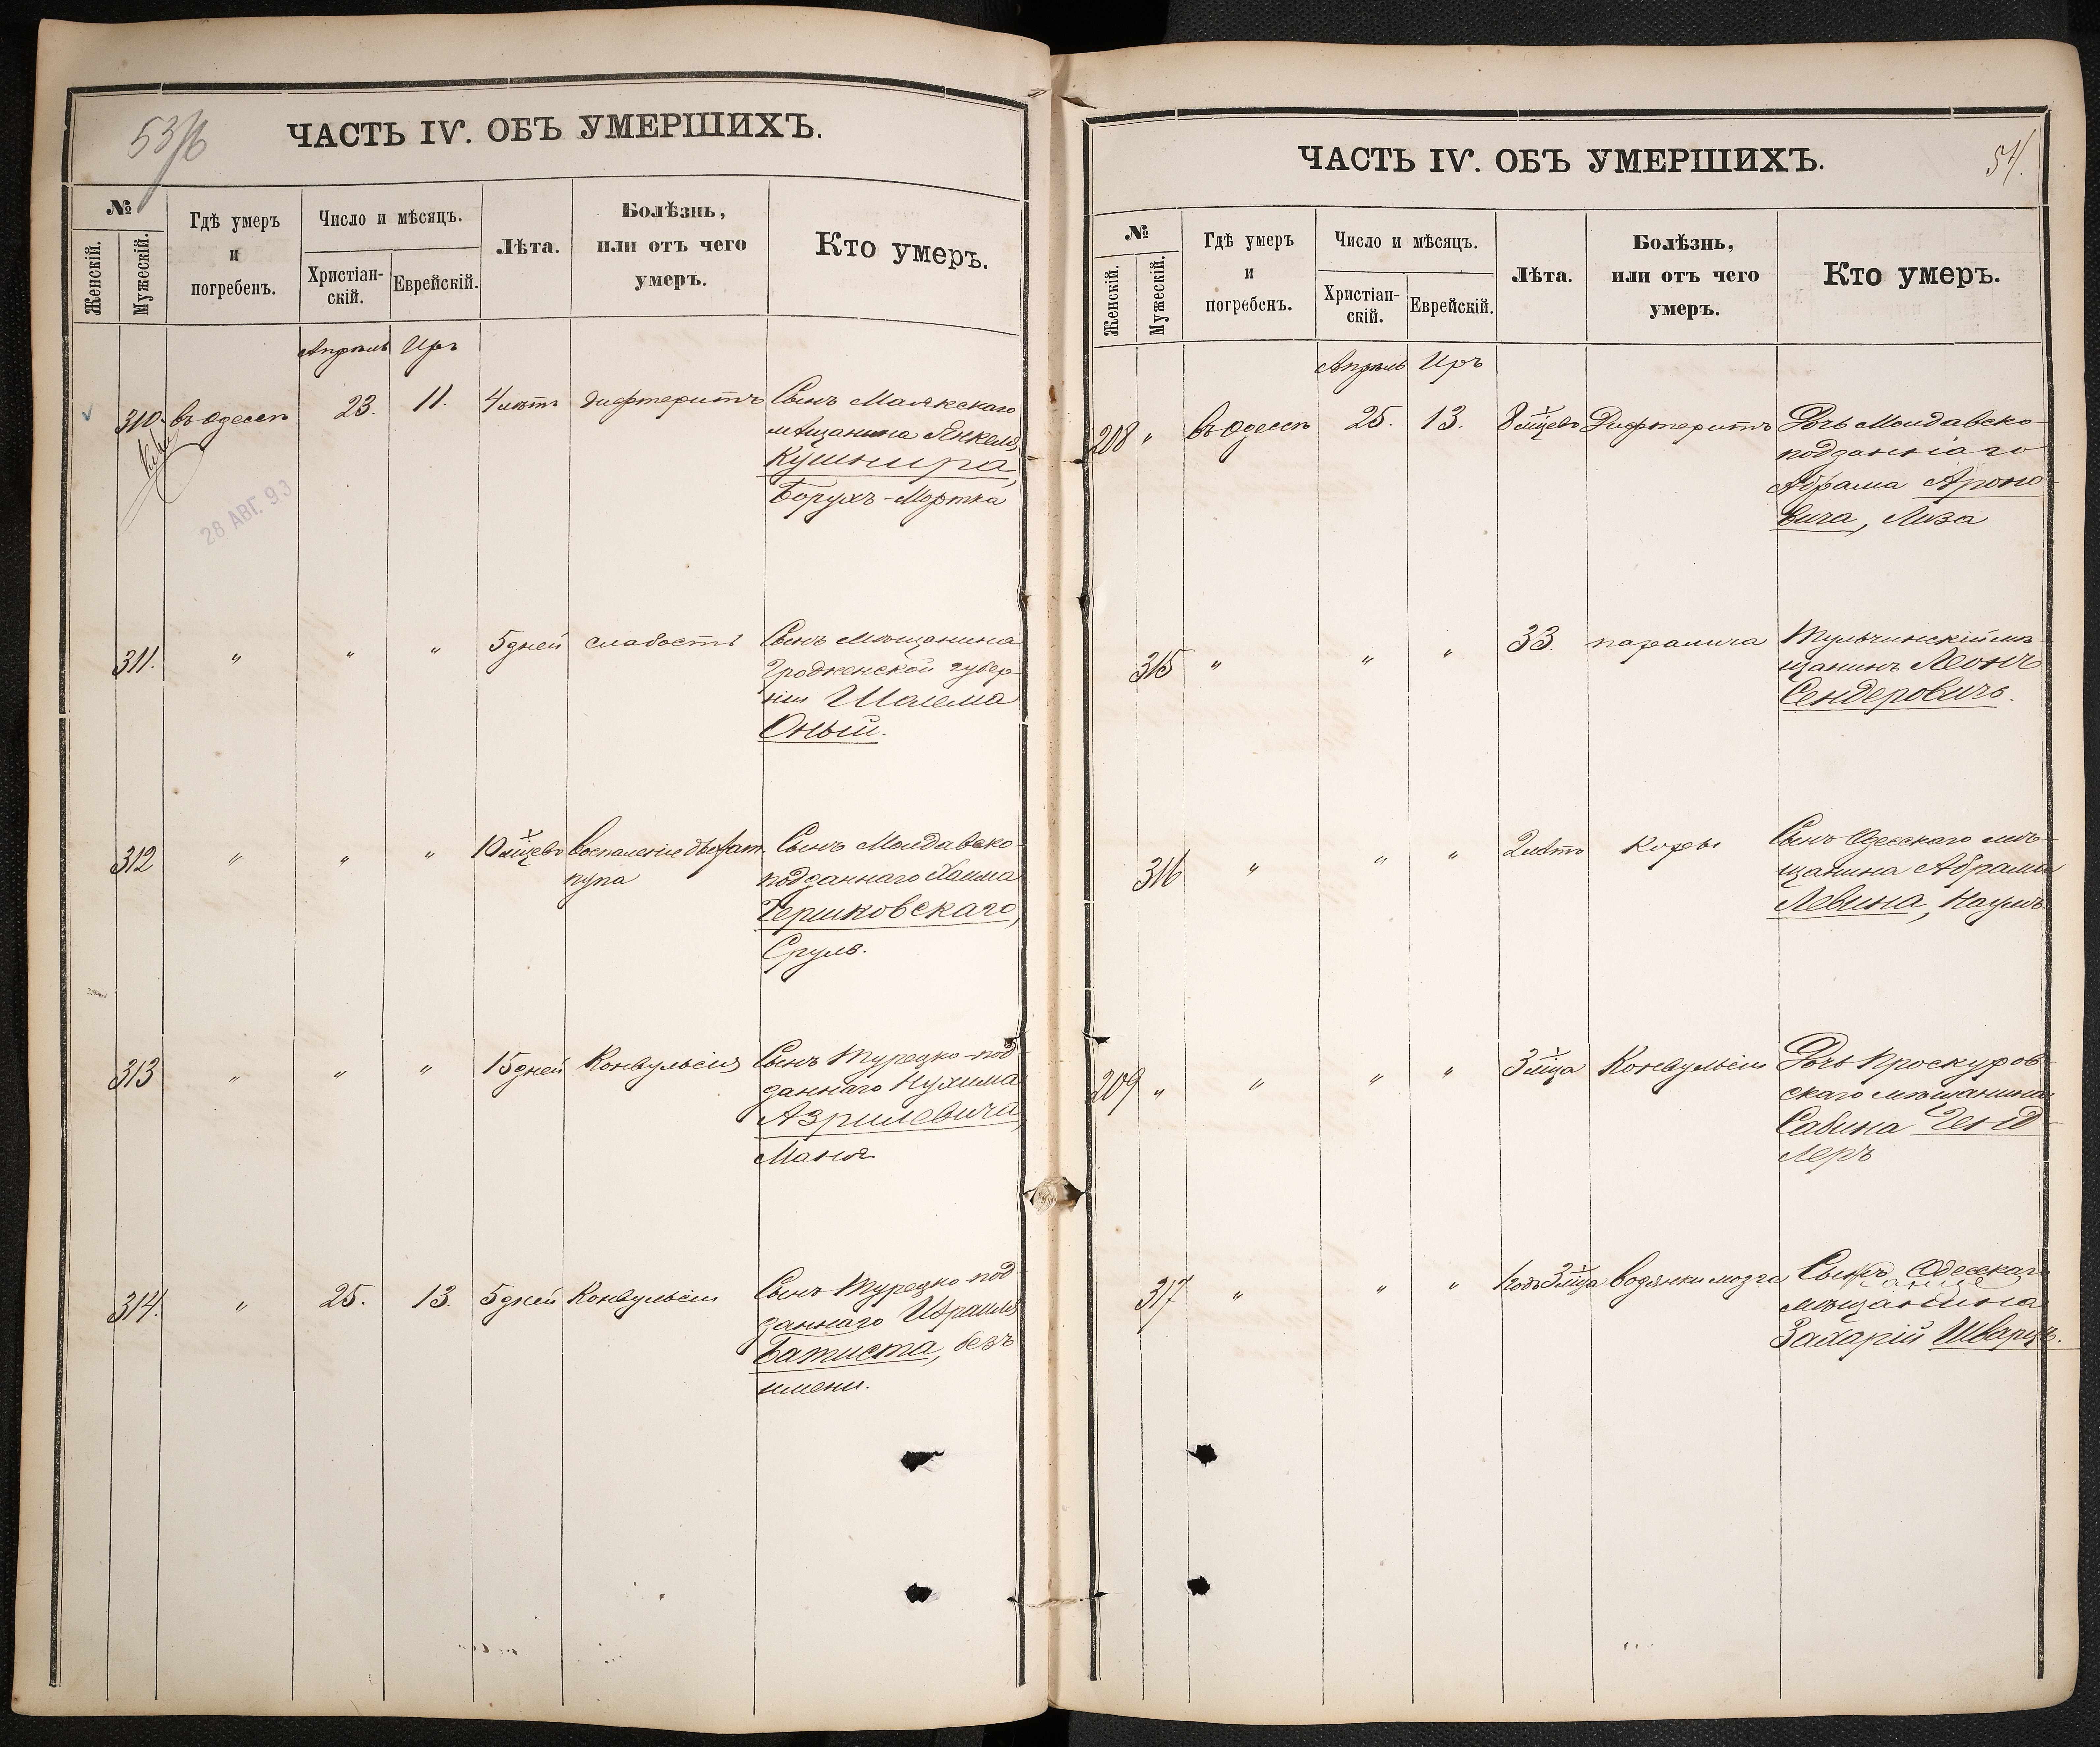 53/б
ЧАСТЬ IV. ОБЪ УМЕРШИХЪ.
№
Женскій.
Мужескій.
Гдѣ умеръ
и
погребенъ.
Число и мѣсяцъ.
Христіан-
скій.
Еврейскій.
Лѣта.
Болѣзнь,
или отъ чего
умеръ.
Кто умеръ.
Апрѣль Иръ
310. въ Одессѣ 23. 11. 4 лѣтъ дифтеритъ Сынъ Маякскаго
мѣщанина Янкеля
Кушнира,
Борухъ-Мортка
28 АВГ. 93
311. " " " 5 дней слабость Сынъ Мѣщанина
Гродненской губер-
ніи Шлема
Оный.
312 " " " 10 мѣцевъ воспаленіе Сынъ Молдавско-
пупа подданнаго Хаима
Гершковскаго,
Сруль.
313 " " " 15 дней Конвульсія Сынъ Турецко-под
даннаго Нухима
Азрилевича,
Маня
314. " 25. 13. 5 дней Конвульсіи Сынъ Турецко-под
даннаго Израиля
Батиста, безъ
имени.
54.
ЧАСТЬ IV. ОБЪ УМЕРШИХЪ.
№
Женскій.
Мужескій.
Гдѣ умеръ
и
погребенъ.
Число и мѣсяцъ.
Христіан-
скій.
Еврейскій.
Лѣта.
Болѣзнь,
или отъ чего
умеръ.
Кто умеръ.
Апрѣль Иръ
208 " въ Одессѣ 25. 13. 8 мѣцевъ Дифтеритъ Дочь Молдавско-
подданнаго
Абрама Ароно-
вича, Лиза
315 " " " 33. паралича Тульчинскій мѣ-
щанинъ Леонъ
Сендеровичъ.
316 " " " 2 лѣтъ Корь Сынъ Одесскаго мѣ-
щанина Абрама
Левина, Наумъ
209 " " " " 3 мѣца Конвульсіи Дочь Проскуров-
скаго мѣщанина
Сабина Генд-
леръ
317 " " " 1 годъ 3 мѣца водянки мозга Сынъ Одесскаго
мѣщанина
Захарій Шварцъ.